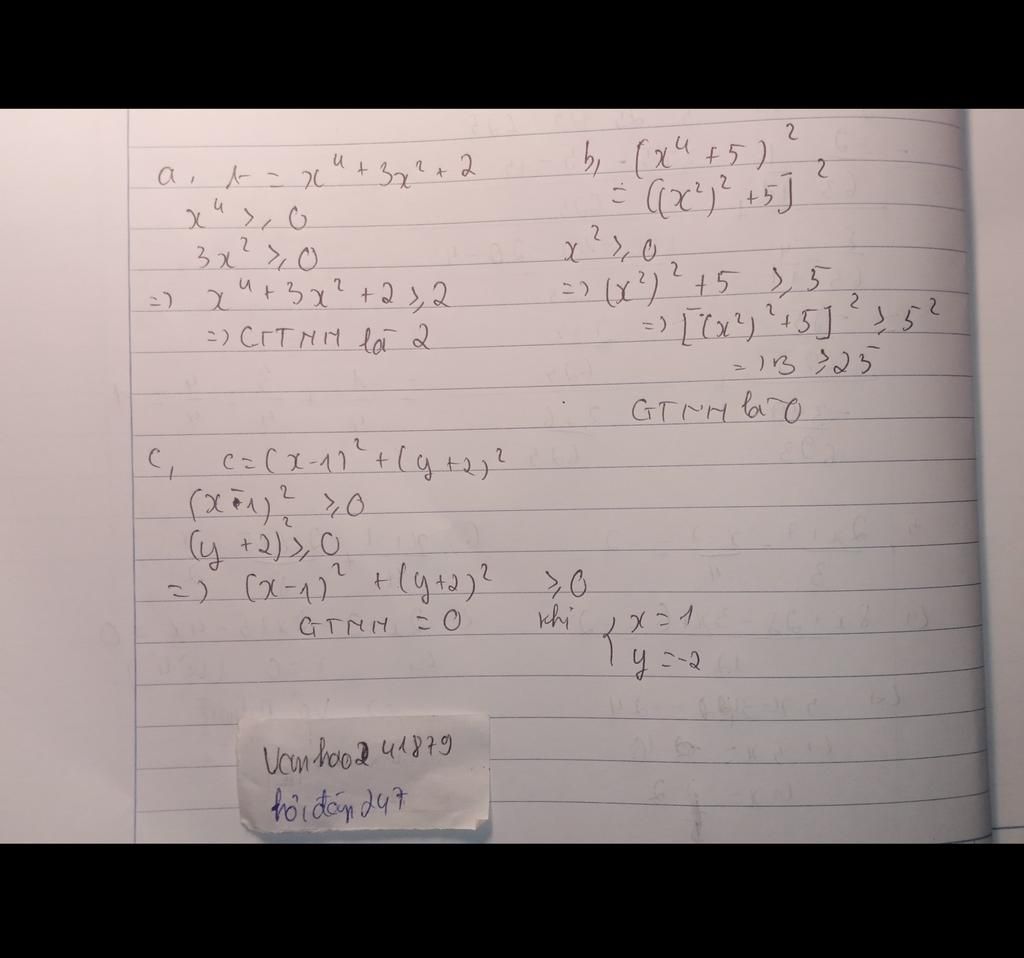 a, A = x⁴ + 3x² + 2
x⁴ ≥ 0
3x² ≥ 0
=> x⁴ + 3x² + 2 ≥ 2
=> GTNN là 2
b, (x⁴ + 5)²
= [(x²)² + 5]²
x² ≥ 0
=> (x²)² + 5 ≥ 5
=> [(x²)² + 5]² ≥ 5²
=> B ≥ 25
GTNN là 0
c, C = (x-1)² + (y+2)²
(x-1)² ≥ 0
(y+2)² ≥ 0
=> (x-1)² + (y+2)² ≥ 0
GTNN = 0 khi { x = 1
y = -2
Vanhao241879
hỏi đáp 247